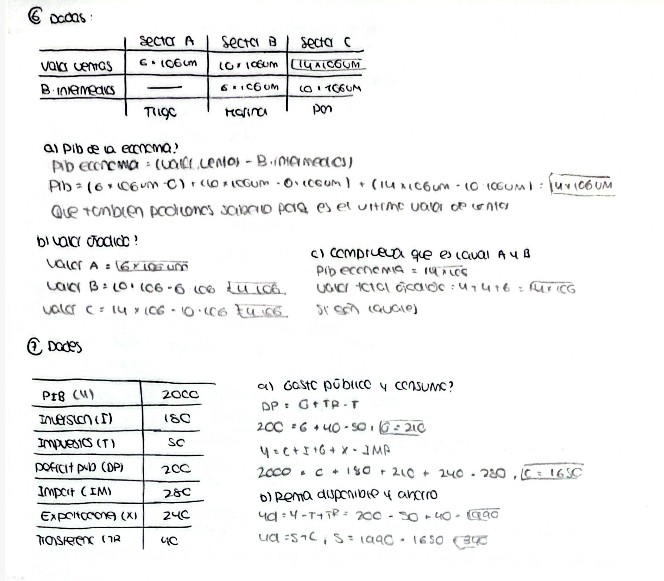 ⑥ Dados:
Sector A | Sector B | Sector C
Valor ventas | 6·106um | 10·106um | 14×106um
B. intermedios | — | 6·106um | 10·106um
Trigo | Harina | pan
a) Pib de la economia?
Pib economia = (valor ventas - B. intermedios)
Pib = (6×106um-0) + (10×106um - 6×106um) + (14×106um - 10·106um) = 14×106um
Que tambien podriamos saberlo para es el ultimo valor de ventas
b) Valor añadido?
Valor A = 6×106um
Valor B = 10·106-6·106 = 4·106
Valor C = 14×106 - 10·106 = 4·106
c) comprueba que es igual A y B
Pib economia = 14×106
Valor total añadido = 4+4+6 = 14×106
Si son iguales
⑦ Dados
PIB (Y) | 2000
Inversion (I) | 180
Impuestos (T) | 50
Deficit pub (DP) | 200
Import (IM) | 280
Exportaciones (X) | 240
Transferenc (TR | 40
a) Gasto público y consumo?
DP = G + TR - T
200 = G + 40 - 50, G = 210
Y = C + I + G + X - IMP
2000 = C + 180 + 210 + 240 - 280, C = 1650
b) Renta disponible y ahorro
Yd = Y - T + TR = 200 - 50 + 40 = 1990
Yd = S + C, S = 1990 - 1650 = 340